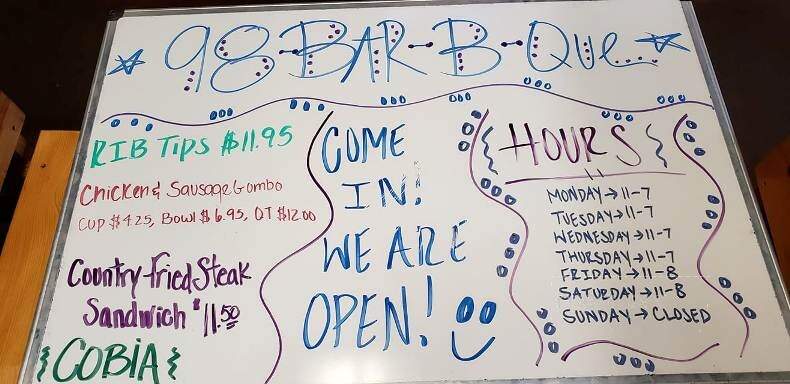 98-BAR-B-QUE
RIB TIPS $11.95
Chicken & Sausage Gombo
CUP $4.25, BOWl $6.95, QT $12.00
Country-fried Steak
Sandwich $11.50
COBIA
COME
IN!
WE ARE
OPEN!
HOURS
MONDAY→11-7
TUESDAY→11-7
WEDNESDAY→11-7
THURSDAY→11-7
FRIDAY→11-8
SATURDAY→11-8
SUNDAY→CLOSED